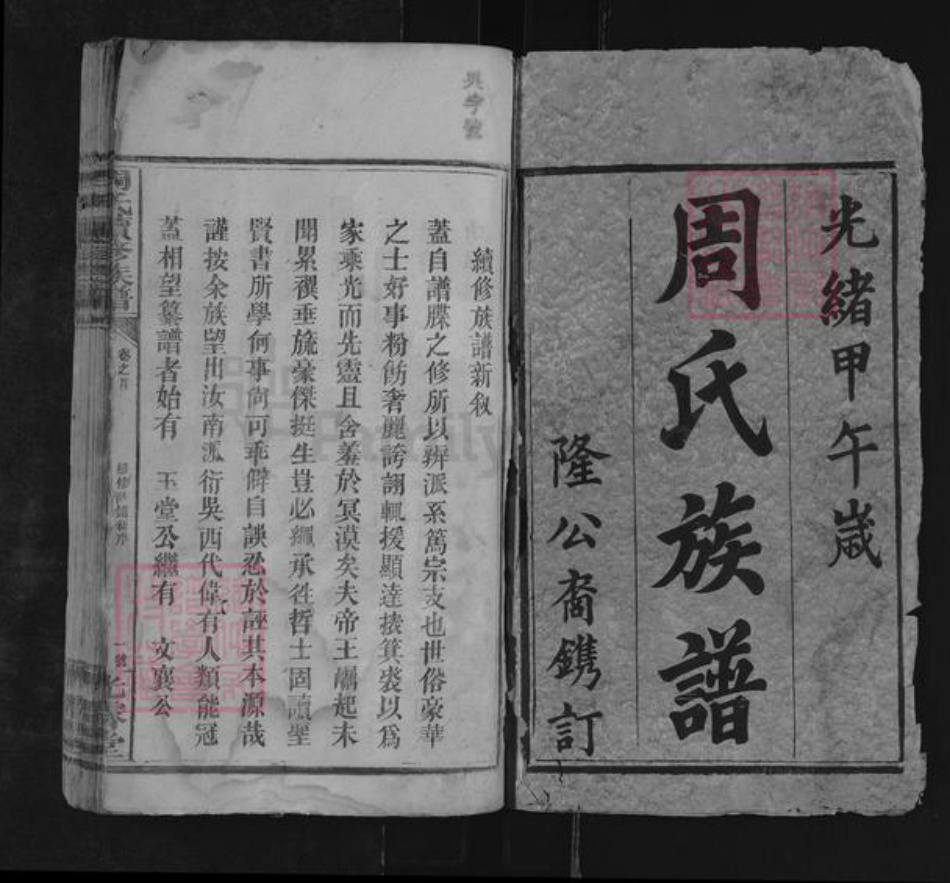 光緒甲午歲
周氏族譜
隆公裔鐫訂
續修族譜新敘
蓋自譜牒之修所以辨派系篤宗支也世俗豪華
之士好事粉飭奢麗誇詡輒援顯達捘箕裘以為
家乘光而先靈且含羞於冥漠矣夫帝王崛起未
聞累禩垂旒豪傑挺生豈必繩承徃哲士固讀聖
賢書所學何事尙可乖僻自誤忍於誣其本源哉
謹按余族望出汝南派衍吳西代偉有人類能冠
蓋相望纂譜者始有 玉堂公繼有 文襄公
周氏續修族譜
卷之首
一號